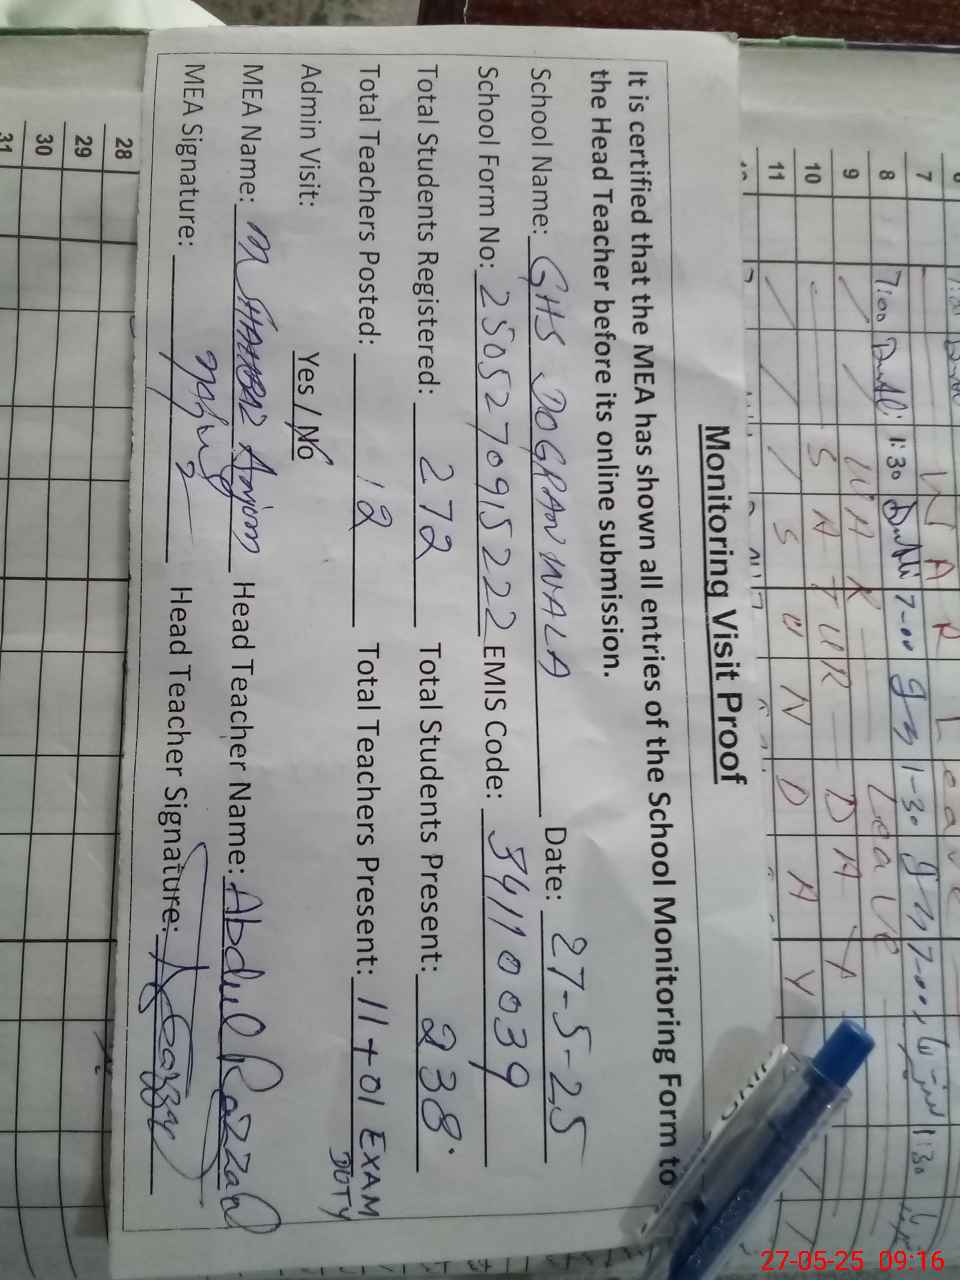 Monitoring Visit Proof
It is certified that the MEA has shown all entries of the School Monitoring Form to
the Head Teacher before its online submission.
School Name: GHS DOGRANWALA Date: 27-5-25
School Form No: 2505270915222 EMIS Code: 34110039
Total Students Registered: 272 Total Students Present: 238
Total Teachers Posted: 12 Total Teachers Present: 11+01 EXAM
DUTY
Admin Visit: Yes / No
MEA Name: M Anjum Head Teacher Name: Abdul Razzaq
MEA Signature: Head Teacher Signature:
7
8 7:00 1:30 Leave
9
10 SATURDAY
11 SUNDAY
28
29
30
31
27-05-25 09:16